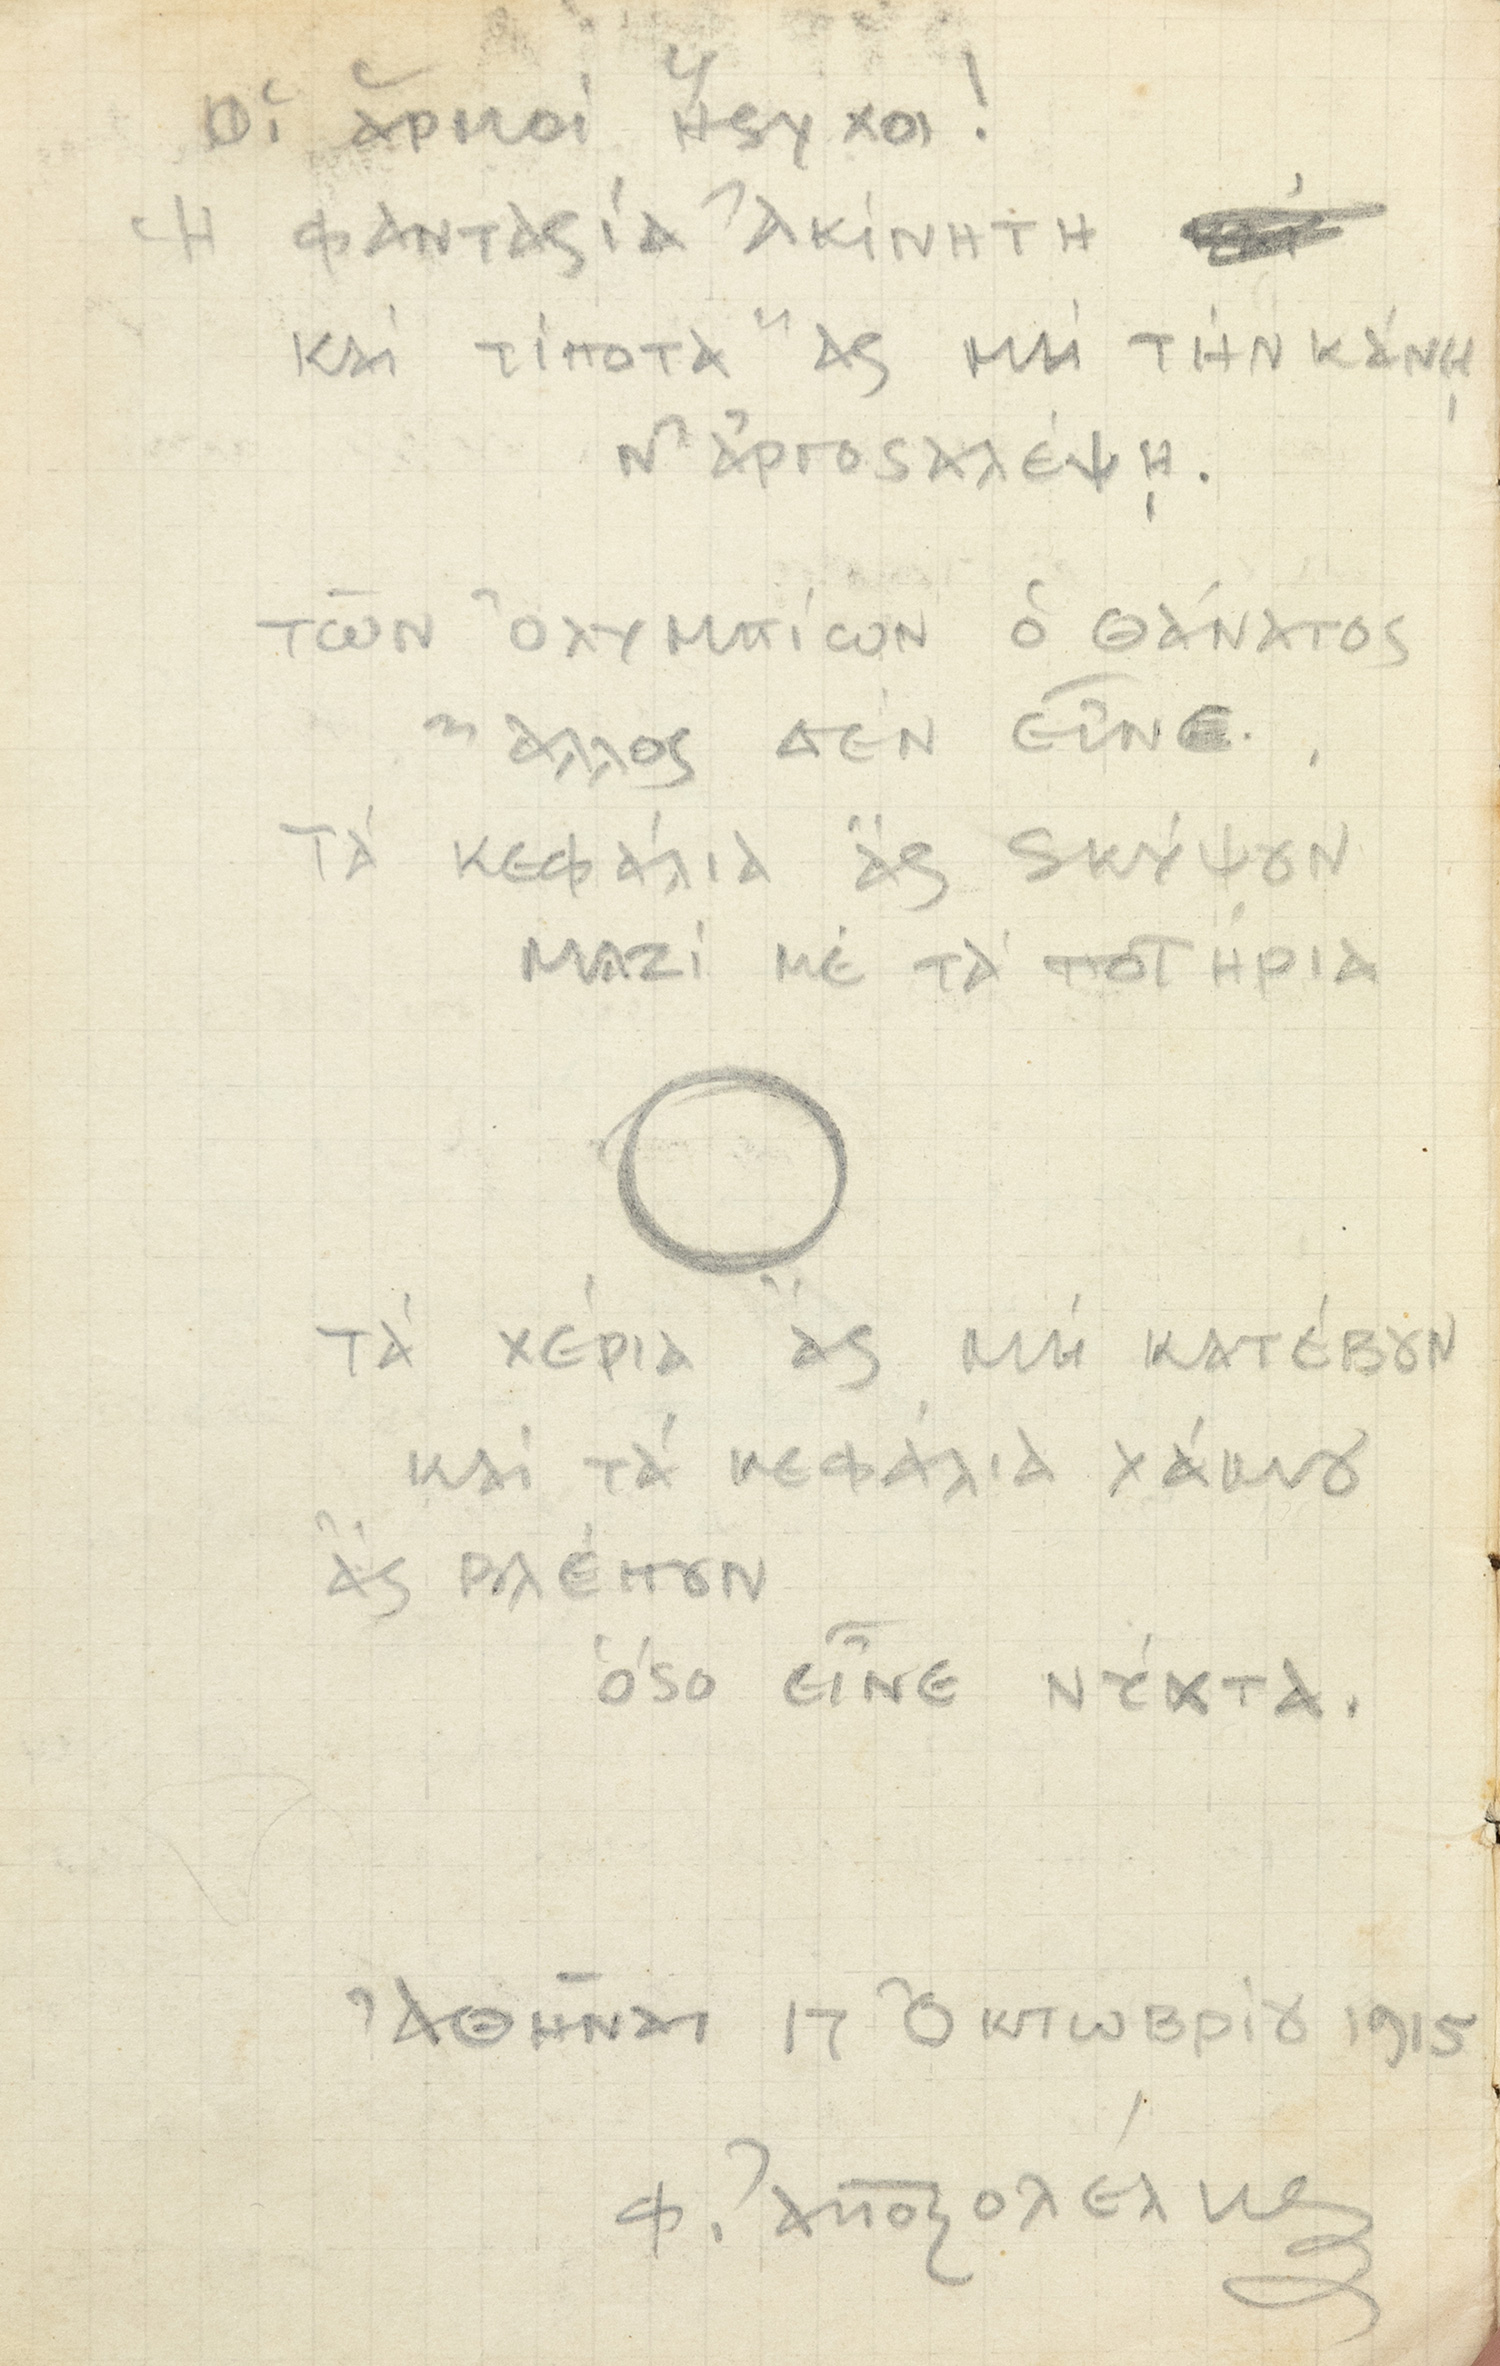 Οἱ ἁρμοί ἥσυχοι!
Ἡ φαντασία ἀκίνητη
καί τίποτα ἄς μή τήν κάνῃ
ν' ἀργοσαλέψῃ.
τῶν Ὀλυμπίων ὁ θάνατος
ἄλλος δέν εἶνε.
Τά κεφάλια ἄς σκύψουν
μαζί μέ τά ποτήρια
τά χέρια ἄς μή κατέβουν
καί τά κεφάλια χάμου
ἄς βλέπουν
ὅσο εἶνε νύκτα.
Ἀθῆναι 17 Ὀκτωβρίου 1915
Φ.